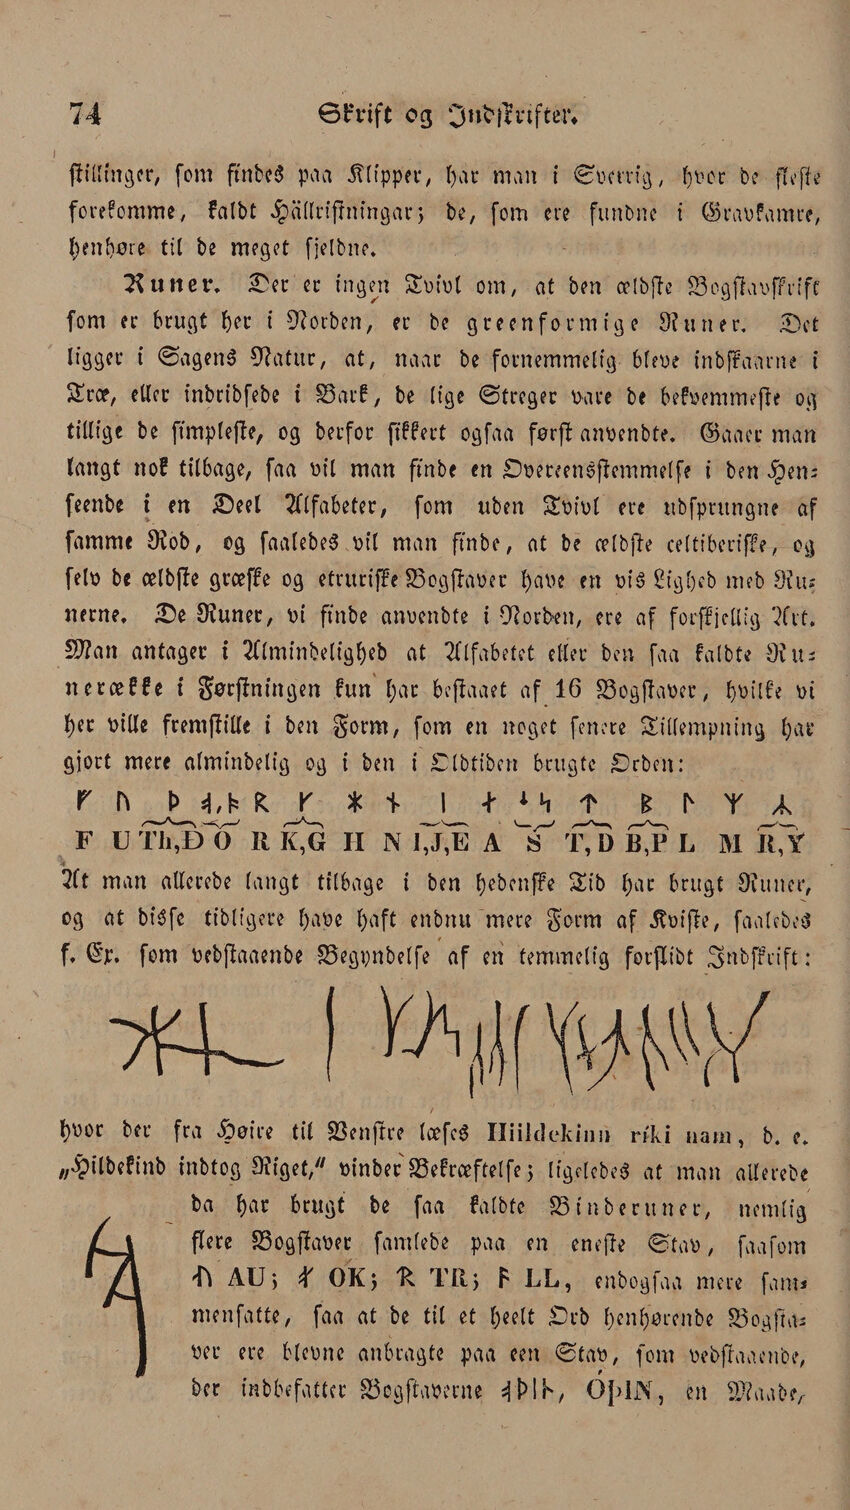 74 Skrift og Indskrifter.
stillinger, som findes paa Klipper, har man i Sverrig, hvor de fleste
forekomme, kaldt Hällristningar; de, som ere fundne i Gravkamre,
henhøre til de meget sjeldne.
Runer. Der er ingen Tvivl om, at den ældste Bogstavskrift
som er brugt her i Norden, er de greenformige Runer. Det
ligger i Sagens Natur, at, naar de fornemmelig bleve indskaarne i
Træ, eller indridsede i Bark, de lige Streger vare de bekvemmeste og
tillige de simpleste, og derfor sikkert ogsaa først anvendte. Gaaer man
langt nok tilbage, saa vil man finde en Overeensstemmelse i den Hen-
seende i en Deel Alfabeter, som uden Tvivl ere udsprungne af
samme Rod, og saaledes vil man finde, at de ældste celtiberiske, og
selv de ældste græske og etruriske Bogstaver have en vis Lighed med Ru-
nerne. De Runer, vi finde anvendte i Norden, ere af forskjellig Art.
Man antager i Almindelighed at Alfabetet eller den saa kaldte Ru-
nerække i Førstningen kun har bestaaet af 16 Bogstaver, hvilke vi
her ville fremstille i den Form, som en noget senere Tillempning har
gjort mere almindelig og i den i Oldtiden brugte Orden:
ᚠ ᚢ ᚦ ᚮ,ᚭ ᚱ ᚴ ᚼ ᚾ ᛁ ᛅ ᛋ ᛏ ᛒ ᛚ ᛘ ᛦ
F U Th,Ð O R K,G H N I,J,E A S T,D B,P L M R,Y
At man allerede langt tilbage i den hedenske Tid har brugt Runer,
og at disse tidligere have haft endnu mere Form af Kviste, saaledes
f. Ex. som vedstaaende Begyndelse af en temmelig forslidt Indskrift:
hvor der fra Høire til Venstre læses Hiildekinn ríki nam, d. e.
„Hildekind indtog Riget," vinder Bekræftelse; ligeledes at man allerede
da har brugt de saa kaldte Binderuner, nemlig
flere Bogstaver samlede paa en eneste Stav, saasom
AU; OK; TR; LL, endogsaa mere sam-
menfatte, saa at de til et heelt Ord henhørende Bogsta-
ver ere blevne anbragte paa een Stav, som vedstaaende,
der indbefatter Bogstaverne ᚮᚦᛁᚿ, ÓþIN, en Maade,